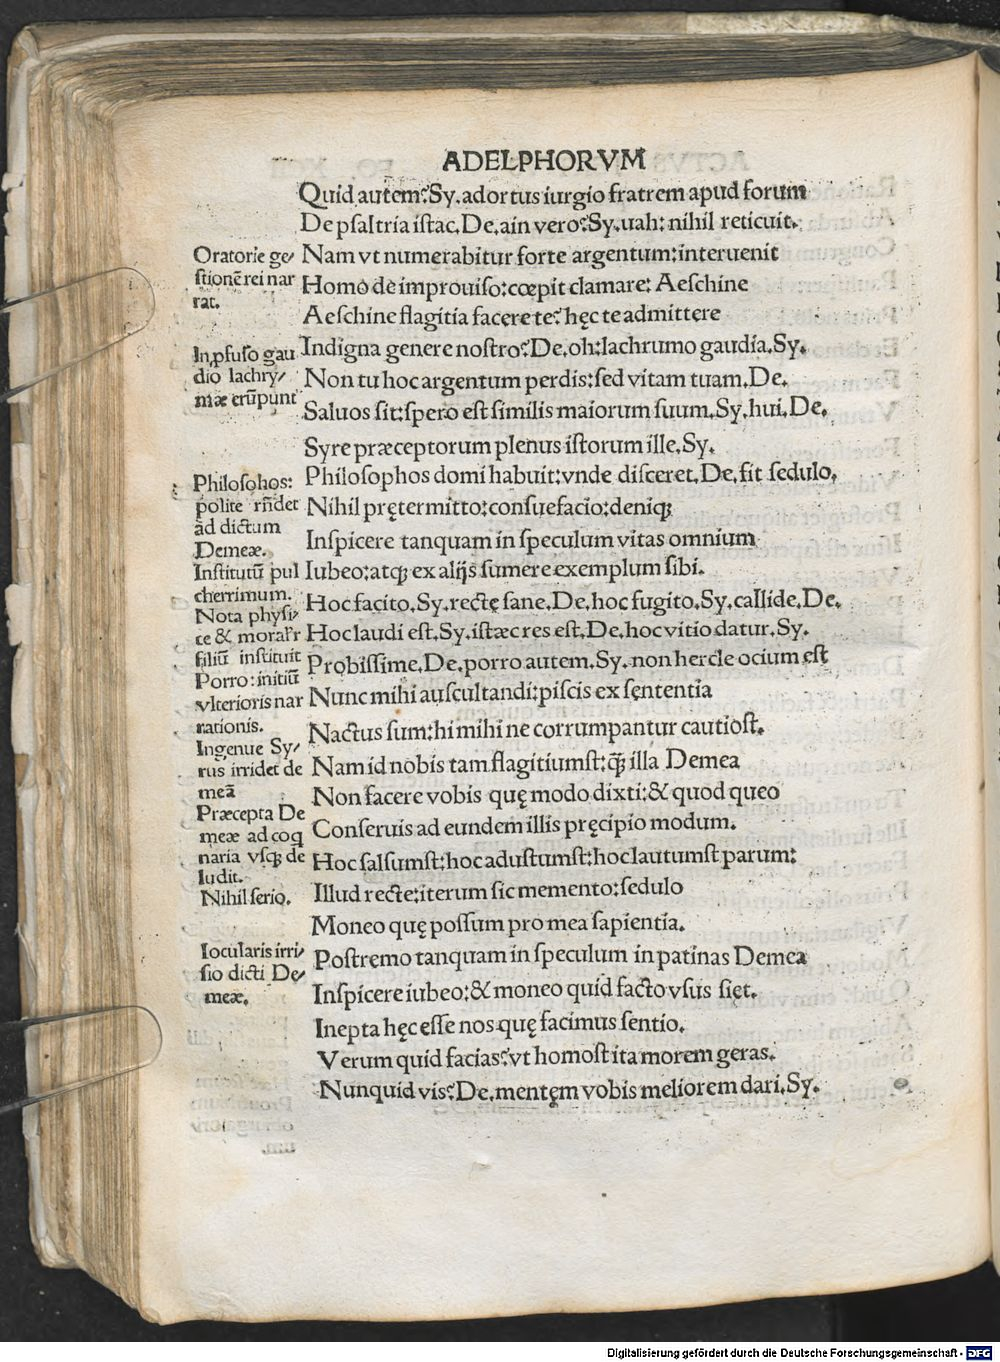 ADELPHORVM
Quid autem? Sy. adortus iurgio fratrem apud forum
De psaltria istac. De. ain vero? Sy. uah: nihil reticuit.
Nam vt numerabitur forte argentum: interuenit
Homo de improuiso: cœpit clamare: Aeschine
Aeschine flagitia facere te? hęc te admittere
Indigna genere nostro? De. oh: lachrumo gaudia. Sy.
Non tu hoc argentum perdis: sed vitam tuam. De.
Saluos sit: spero est similis maiorum suum. Sy. hui. De.
Syre præceptorum plenus istorum ille. Sy.
Philosophos domi habuit: vnde disceret. De. fit sedulo.
Nihil prętermitto: consuefacio: deniqꝫ
Inspicere tanquam in speculum vitas omnium
Iubeo: atqꝫ ex alijs sumere exemplum sibi.
Hoc facito. Sy. recte sane. De. hoc fugito. Sy. callide. De.
Hoc laudi est. Sy. istæc res est. De. hoc vitio datur. Sy.
Probissime. De. porro autem. Sy. non hercle ocium est
Nunc mihi auscultandi: piscis ex sententia
Nactus sum: hi mihi ne corrumpantur cautiost.
Nam id nobis tam flagitiumst: ꝙ̃ illa Demea
Non facere vobis quę modo dixti: & quod queo
Conseruis ad eundem illis pręcipio modum.
Hoc salsumst: hoc adustumst: hoc lautumst parum:
Illud recte: iterum sic memento: sedulo
Moneo quę possum pro mea sapientia.
Postremo tanquam in speculum in patinas Demea
Inspicere iubeo: & moneo quid facto vsus siet.
Inepta hęc esse nos quę facimus sentio.
Verum quid facias? vt homost ita morem geras.
Nunquid vis? De. mentem vobis meliorem dari. Sy.
Oratorie ge/
stionē rei nar
rat.
In ꝓfuso gau
dio lachry/
mæ erūpunt
Philosohos:
polite rñdet
ad dictum
Demeæ.
Institutū pul
cherrimum.
Nota physi/
ce & moral'r
filiū instituit
Porro: initiū
vlterioris nar
rationis.
Ingenue Sy/
rus irridet de
meā
Præcepta De
meæ ad coq
naria vsqꝫ de
ludit.
Nihil serio.
Iocularis irri/
sio dicti De/
meæ.
Digitalisierung gefördert durch die Deutsche Forschungsgemeinschaft - DFG